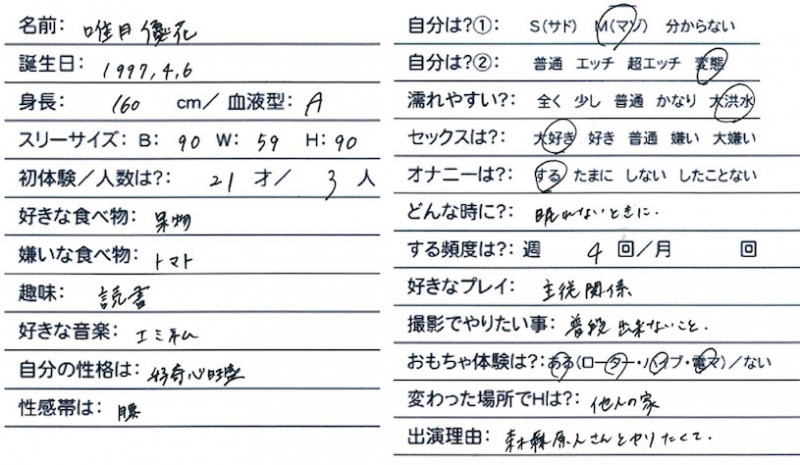 名前: 唯月優花
誕生日: 1997,4,6
身長: 160 cm/ 血液型: A
スリーサイズ: B: 90 W: 59 H: 90
初体験/人数は?: 21 才/ 3 人
好きな食べ物: 果物
嫌いな食べ物: トマト
趣味: 読書
好きな音楽: エミネム
自分の性格は: 好奇心旺盛
性感帯は: 腰
自分は?①: S(サド) M(マゾ) 分からない
自分は?②: 普通 エッチ 超エッチ 変態
濡れやすい?: 全く 少し 普通 かなり 大洪水
セックスは?: 大好き 好き 普通 嫌い 大嫌い
オナニーは?: する たまに しない したことない
どんな時に?: 眠れないときに.
する頻度は?: 週 4 回/月 回
好きなプレイ: 主従関係
撮影でやりたい事: 普段出来ないこと.
おもちゃ体験は?: ある(ローター・バイブ・電マ)/ない
変わった場所でHは?: 他人の家
出演理由: 森原人さんとヤりたくて.